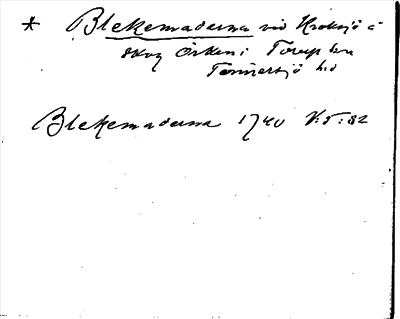 * Blekemaderna vid Kroksjö å
skog Örken i Torup sn
Tönnersjö hd
Blekemaderna 1740 V:5:82